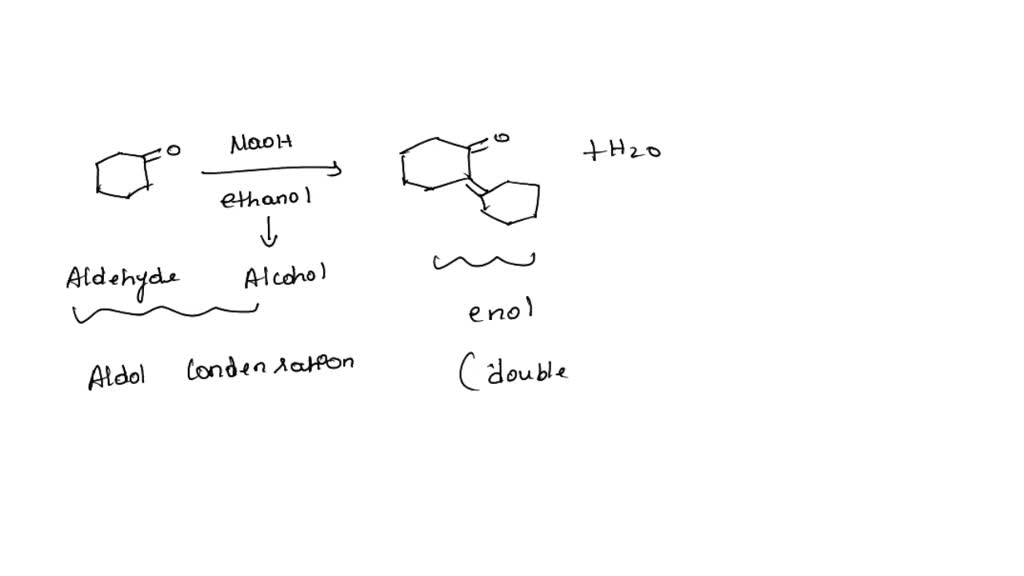 O NaOH O +H2O
ethanol
↓
Aldehyde Alcohol
enol
Aldol Condensation (double